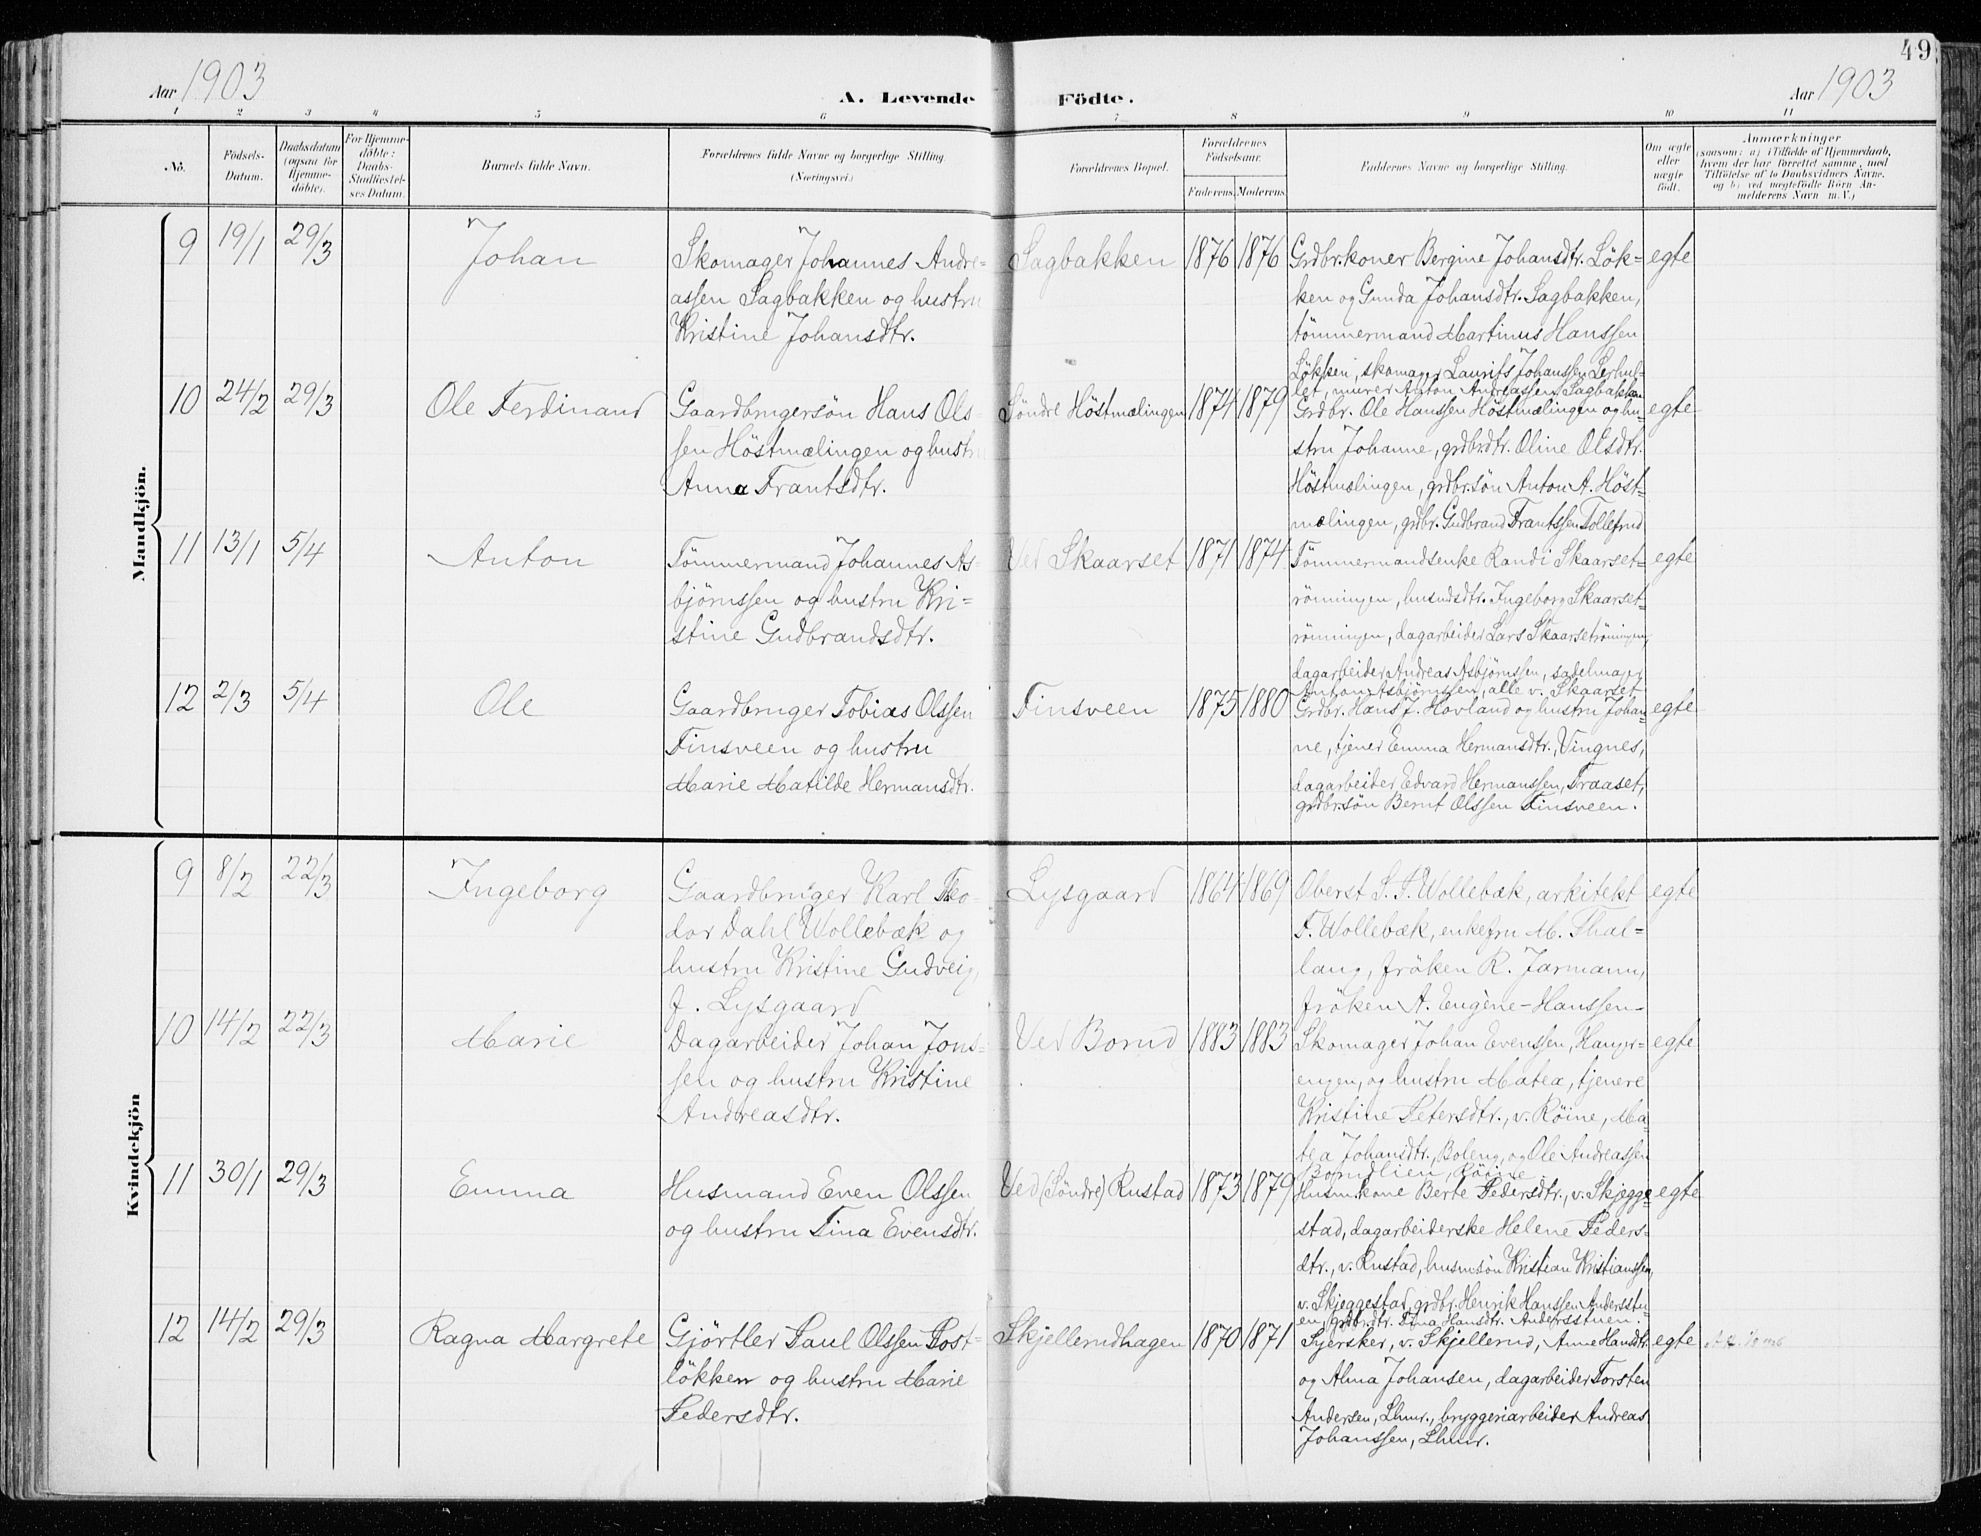 49
Aar 1903
A. Levende Födte.
Aar 1903
1 2 3 4 5 6 7 8 9 10 11
No.
Födsels-
Datum.
Daabsdatum
(ogsaa for
Hjemme-
döbte).
For Hjemme-
döbte:
Daabs-
Stadfæstel-
ses Datum.
Barnets fulde Navn.
Forældrenes fulde Navne og borgerlige Stilling.
(Næringsvei.)
Forældrenes Bopæl.
Forældrenes
Födselsaar.
Faderens. Moderens.
Faddernes Navne og borgerlige Stilling.
Om ægte
eller
uægte
födt.
Anmærkninger
(saasom: a) i Tilfælde af Hjemmedaab,
hvem der har forrettet samme, med
Tilföielse af to Daabsvidners Navne,
og b) ved uægtefödte Börn An-
melderens Navn m. V.)
Mandkjön.
9 19/1 29/3 Johan
Skomager Johannes Andre-
assen Sagbakken og hustru
Kristine Johansdtr.
Sagbakken 1876 1876
Grdbr.koner Bergine Johansdtr. Lök-
ken og Gunda Johansdtr. Sagbakken,
tömmermand Martinus Hanssen
Lökken, skomager Laurits Johanssen Lerhul-
let, murer Anton Andreassen Sagbakken
egte
10 24/2 29/3 Ole Ferdinand
Gaardbrugersön Hans Ols-
sen Höstmælingen og hustru
Anna Frantsdtr.
Söndre Höstmælingen 1874 1879
Grdbr. Ole Hanssen Höstmælingen og hu-
stru Johanne, grdbr.dtr. Oline Olsdtr.
Höstmælingen, grdbr.sön Anton A. Höst-
mælingen, grdbr. Gudbrand Frantssen Tollefrud
egte
11 13/1 5/4 Anton
Tömmermand Johannes As-
björnssen og hustru Kri-
stine Gudbrandsdtr.
Ved Skaarset 1871 1874
Tömmermandsenke Randi Skaarset-
rönningen, husmdsdtr. Ingeborg Skaarset-
rönningen, dagarbeider Lars Skaarsetröningen,
dagarbeider Andreas Asbjörnssen, sadelmager
Anton Asbjörnssen, alle v. Skaarset
egte
12 2/3 5/4 Ole
Gaardbruger Tobias Olssen
Finsveen og hustru
Marie Matilde Hermansdtr.
Finsveen 1875 1880
Grdbr. Hans J. Hovland og hustru Johan-
ne, tjener Emma Hermansdtr., Vingnes,
dagarbeider Edvard Hermanssen, Traaset,
grdbr.sön Bernt Olssen Finsveen.
egte
Kvindekjön
9 8/2 22/3 Ingeborg
Gaardbruger Karl Teo-
dor Dahl Wollebæk og
hustru Kristine Gudveig,
f. Lysgaard
Lysgaard 1864 1869
Oberst S. T. Wollebæk, arkitekt
T. Wollebæk, enkefru M. Thal-
laug, fröken R. Jarmann,
fröken A. Eugène-Hanssen
egte
10 14/2 22/3 Marie
Dagarbeider Johan Jons-
sen og hustru Kristine
Andreasdtr.
Ved Borud 1883 1883
Skomager Johan Evenssen,
engen, og hustru Matea, tjenere
Kristine Petersdtr., v. Röine, Ma-
tea Johansdtr., Boleng, og Ole Andreassen
Borudlien, Röine
egte
11 30/1 29/3 Emma
Husmand Even Olssen
og hustru Tina Evensdtr.
Ved (Söndre) Rustad 1873 1879
Husm.kone Berte Pedersdtr., v. Skjegge-
stad, dagarbeiderske Helene Peders-
dtr., v. Rustad, husm.sön Kristian Kristianssen,
v. Skjeggestad, grdbr. Henrik Hanssen Andersstu-
en, grdbr.dtr. Tina Hansdtr. Andersstuen.
egte
12 14/2 29/3 Ragna Margrete
Gjörtler Paul Olssen Post-
lökken og hustru Marie
Pedersdtr.
Skjellerudhagen 1870 1871
Syersker, v. Skjellerud, Anne Hansdtr.
og Alma Johansen, dagarbeider Torsten
Andersen, Lhmr., bryggeriarbeider Andreas
Johanssen, Lhmr.
egte